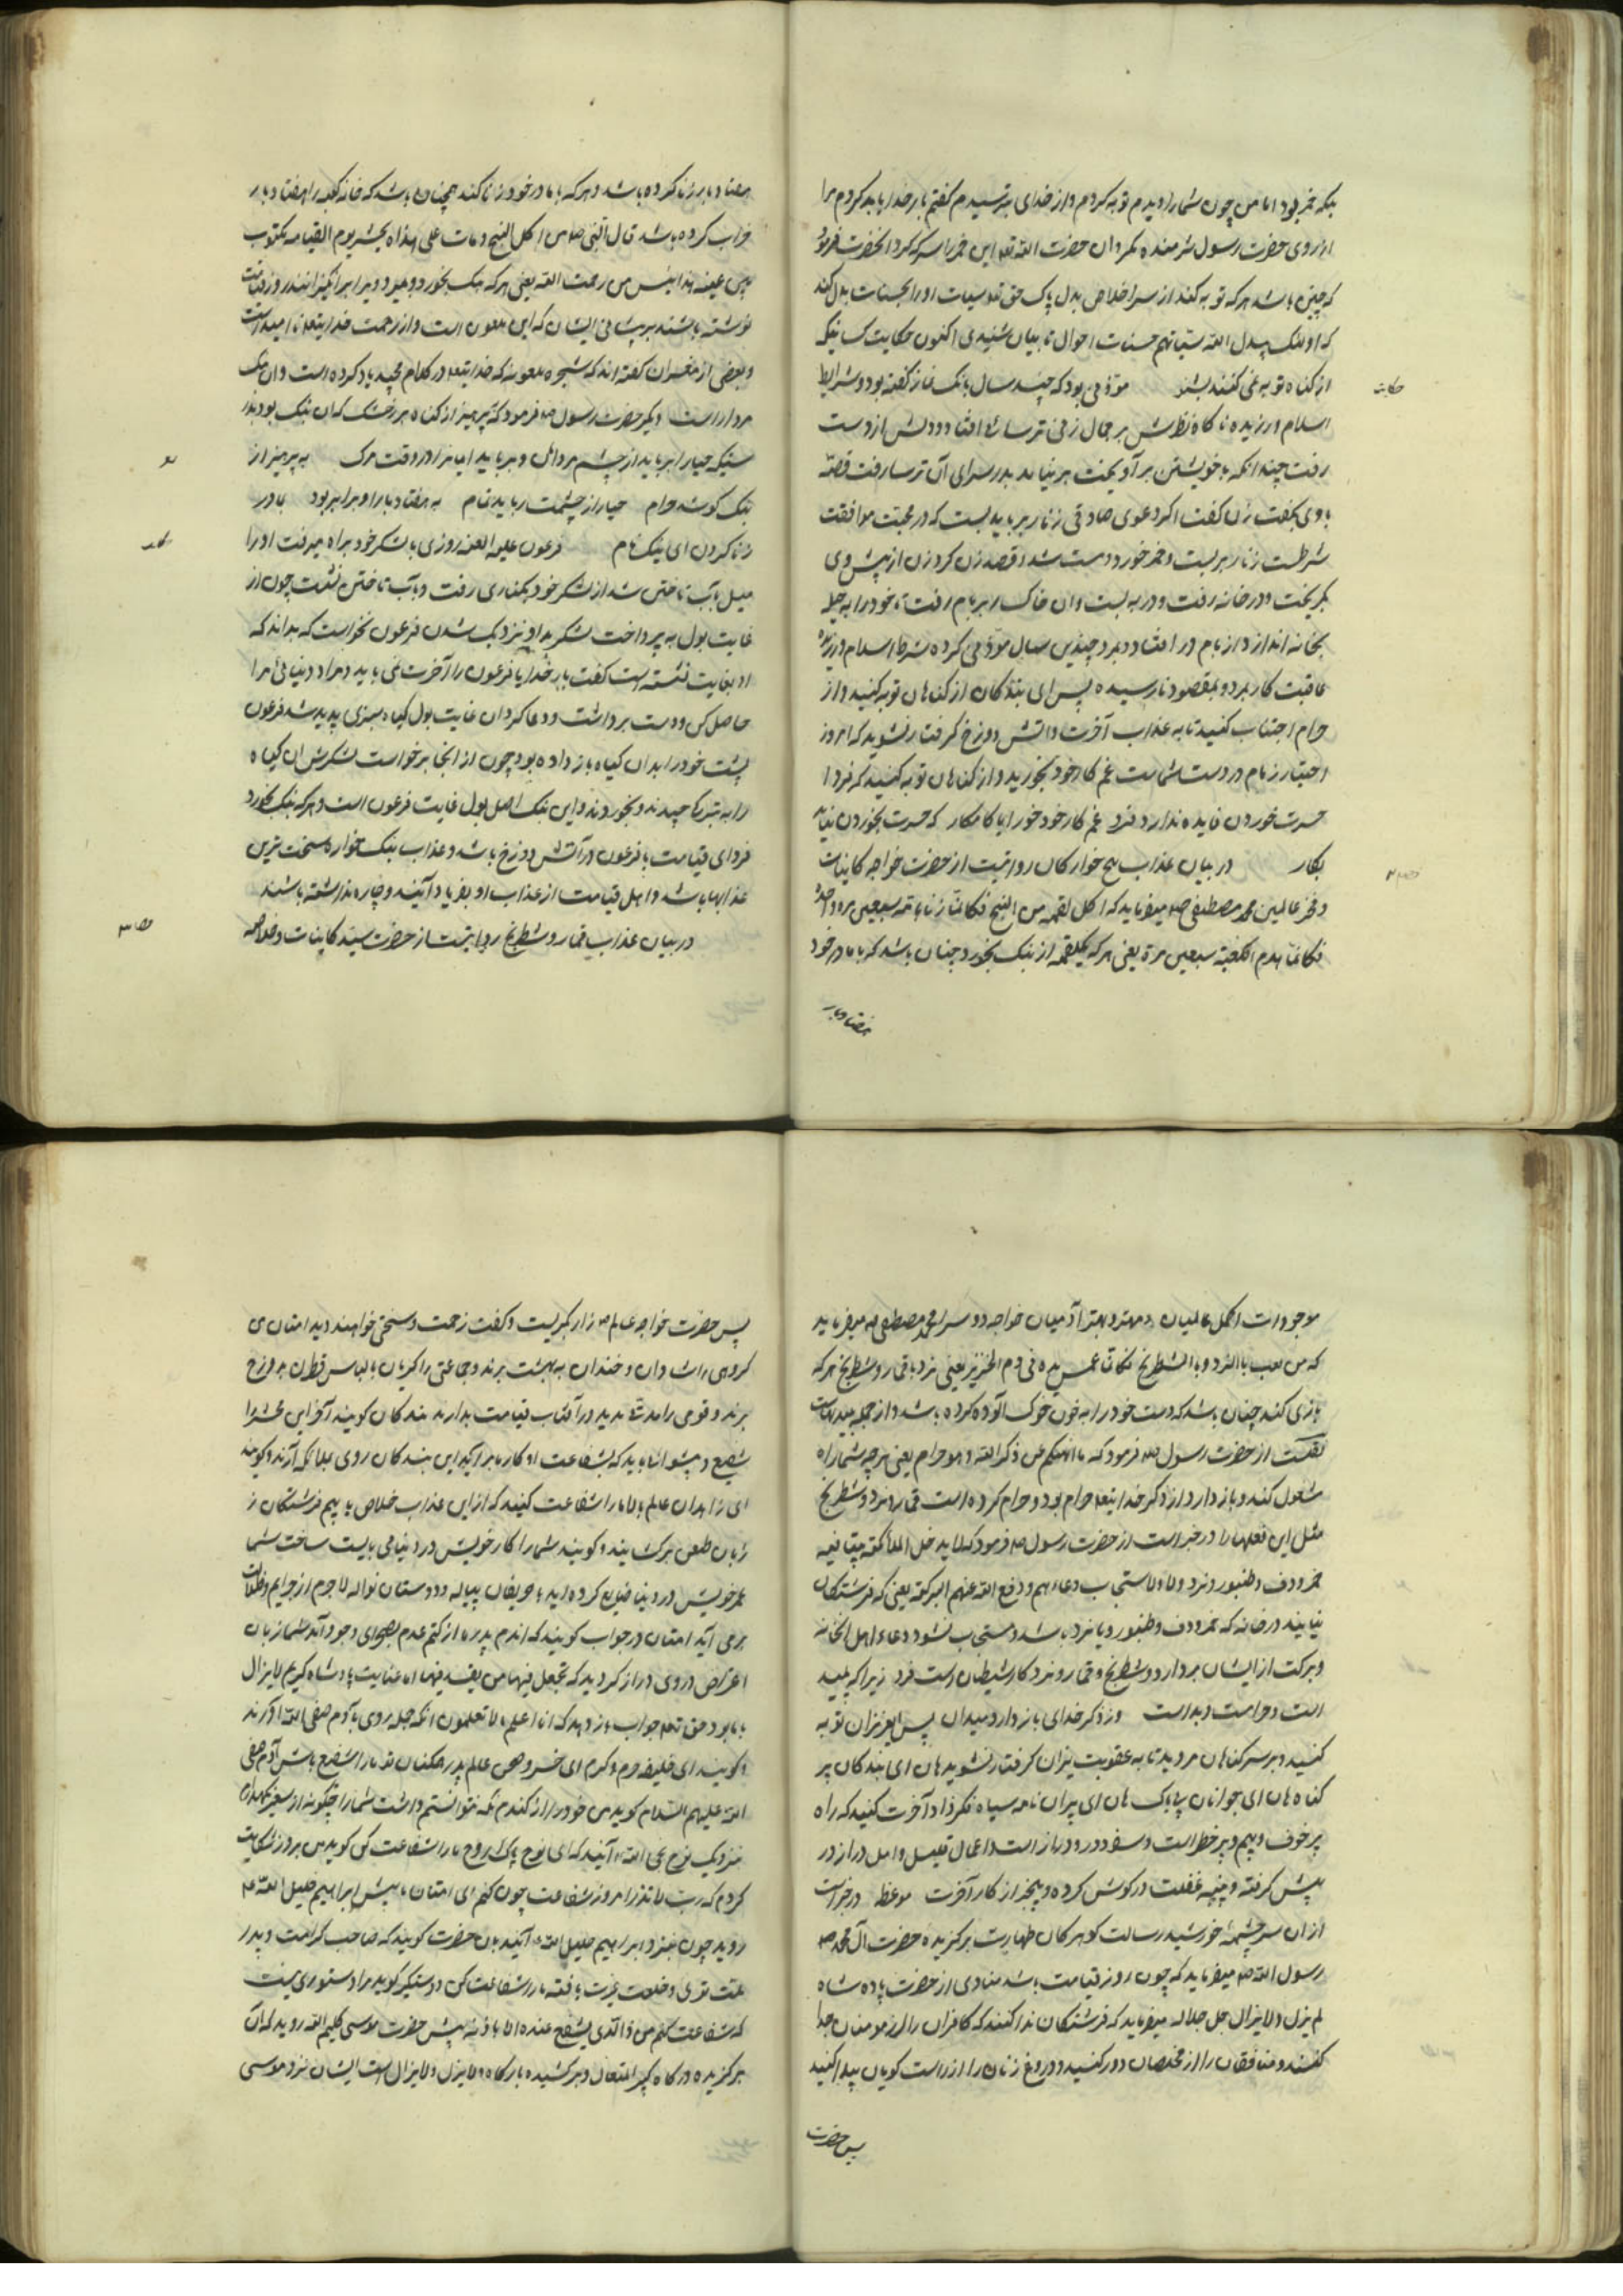 بلکه خمر بود اما من چون شما را دیدم توبه کردم و از خدای بترسیدم گفتم بار خدایا بد کردم مرا
از روی حضرت رسول شرمنده مگردان حضرت الله تعه این خمر را سرکه کرد انحضرت فرمود
که چنین باشد هر که توبه کند از سر اخلاص بدل پاک حق تعه سیات او را بحسنات بدل کند
که اولئک یبدل الله سیاتهم حسنات احوال تایبان شنیدی اکنون حکایت کسانیکه
از گناه توبه نمی کنند بشنو مؤذنی بود که چند سال بانک نماز گفته بود و شرایط
حکایت
اسلام ورزیده ناگاه نظرش بر جمال زنی ترسا افتاد و دلش از دست
رفت چندانکه با خویشتن بر آویخت بر نیامد بدر سرای آن ترسا رفت قصه
با وی بگفت زن گفت اگر دعوی صادقی زنار بر باید بست که در محبت موافقت
شرطست زنار بر بست و خمر خورد و مست شد و قصد زن کرد زن از پیش وی
بگریخت و در خانه رفت و در به بست و ان خاکسار بر بام رفت تا خود را به حیله
بخانه اندازد از بام در افتاد و بمرد چندین سال مؤذنی کرده شرط اسلام ورزیده
عاقبت کافر مرد و بمقصود نارسیده پس ای بندکان از کناهان توبه کنید و از
حرام اجتناب کنید تا به عذاب آخرت و اتش دوزخ گرفتار نشوید که امروز
اختیار زمام در دست شماست غم کار خود بخورید و از کناهان توبه کنید که فردا
حسرت خوردن فایده ندارد فرد غم کار خود خور ایا کامکار که حسرت بخوردن نیاید
بکار در بیان عذاب بنج خوارکان روایتست از حضرت خواجه کاینات
و فخر عالمین محمد مصطفی صه میفرماید که اکل لقمة من البنج فکانما زناء بامه سبعین مرة
فکانما هدم الکعبة سبعین مرة یعنی هر که یکلقمه از بنک بخورد چنان باشد که با مادر خود
هفتاد بار
هفتاد بار زنا کرده باشد و هر که با مادر خود زنا کند همچنان باشد که خانه کعبه را هفتاد بار
خراب کرده باشد قال النبی صه من اکل البنج و مات علی هذا یحشر یوم القیامه مکتوب
بین عینیه هذا ایس من رحمت الله یعنی هر که بنک بخورد و بمیرد ویرا بر انگیزانند روز قیامت
نوشته باشند بر پیشانی ایشان که این ملعون است و از رحمت خدایتعه نا امیدست
و بعضی از مفسران کفته اند که شجره ملعونه که خدایتعه در کلام مجید یاد کرده است و ان بنک
مردار است دیکر حضرت رسول صه فرمود که پرهیز از کناه هر خشک که ان بنک بود بدر
ستیکه حیا را برباید از چشم مردمان و برباید ایمانرا در وقت مرک به پرهیز از
بنک کوشد حرام حیا از چشمت رباید تمام به هفتاد بار او برابر بود بمادر
زنا کردن ای نیک نام فرعون علیه العنه روزی با لشکر خود براه میرفت او را
میل باب تاختن شد از لشکر خود بکناری رفت و باب تاختن نشست چون از
غایت بول به پرداخت لشکر بد او نزدیک شدن فرعون نخواست که بدانند که
او بغایت نشسته است کفت بار خدایا فرعون را آخرت نمی باید و مراد دنیائی مرا
حاصل کن و دست برداشت و دعا کرد ان غایت بول کیاه سبزی پدید شد فرعون
پشت خود را بدان کیاه باز داده بود چون از انجا برخواست لشکرش ان کیاه
را به تبرک چیدند و بخوردند و این بنک اصل بول غایت فرعون است و هر که بنک بخورد
فردای قیامت با فرعون در آتش دوزخ باشد و عذاب بنک خواره سخت ترین
عذابها باشد و اهل قیامت از عذاب او بفریاد آیند و چاره نداشته باشند
در بیان عذاب قمار و شطرنج روایتست از حضرت سید کاینات و خلاصه
موجودات اکمل عالمیان و مهتر و بهتر آدمیان خواجه دو سرا محمد مصطفی صه میفرماید
که من لعب بالنرد و بالشطرنج فکانما غمس یده فی دم الخنزیر یعنی نرد با قمار و شطرنج هر که
بازی کند چنان باشد که دست خود را به خون خوک الوده کرده باشد و از جمله پلید
نقلست از حضرت رسول صه فرمود که ما الهیکم عن ذکر الله و هو حرام یعنی هر چه شما را
مشغول کند و باز دارد از ذکر خدایتعه حرام بود و حرام کرده است قمار و نرد و شطرنج
مثل این فعلها را در خبر است از حضرت رسول صه فرمود که لا یدخل الملائکته بیتا فیه
خمر و دف و طنبور و نرد ولا یستجاب دعاءهم و رفع الله عنهم البرکة یعنی که فرشتکان
نیایند در خانه که خمر و دف و طنبور و یا نرد باشد و مستجاب نشود دعاء اهل انخانه
و برکت از ایشان بردارد و شطرنج و قمار و نرد کار شیطان است فرد زیرا که پلید
است و حرامست و بد است وز ذکر خدای باز دارد میدان پس ای عزیزان توبه
کنید و بر سر کناهان مروید تا به عقوبت نیران کرفتار نشوید هان ای بندکان پر
کناه هان ای جوانان بی باک هان ای پیران نامه سیاه فکر زاد آخرت کنید که راه
پر خوف و بیم و پر خطر است و سفر دور و دراز است و اعمال قلیل و امل دراز در
پیش کرفته و پنبه غفلت در کوش کرده و بیخبر از کار آخرت موعظه در خبر است
از ان سرچشمه خورشید رسالت کوهر کان طهارت برکزیده حضرت آل محمد صه
رسول الله صه میفرماید که چون روز قیامت باشد منادی از حضرت پادشاه
لم یزل ولا یزال جل جلاله میفرماید که فرشتکان ندا کنند که کافران را از مومنان جدا
کنند و منافقان را از مخلصان دور کنید و دروغ زنان را از راست کویان پیدا کنید
پس حضرت
پس حضرت خواجه عالم صه زار بگریست و کفت زحمت و سختی خواهند دید امتان من
کروهی را شادان و خندان به بهشت برند و جماعتی را کریان با لباس قطران بدوزخ
برند و قومی را مدت مدید در آفتاب قیامت بدارند بندکان کویند آخر این محشر را
شفیع و پیشوا باید که بشفاعت او کار ما بر آید این بندکان روی بملائکه آرند و کویند
ای زاهدان عالم بالا ما را شفاعت کنید که از این عذاب خلاص یابیم فرشتکان ز
زبان طعن برکشایند و کویند شما را کار خویش در دنیا می بایست ساخت شما
عمر خویش در دنیا ضایع کرده اید با حریفان پیاله و دوستان نواله لاجرم از جرایم
بر می آید امتان در جواب کویند که اندم پدر ما از کتم عدم بصحرای وجود آمد شما زبان
اعتراض در وی دراز کردید که تجعل فیها من یفسد فیها اما عنایت پادشاه کریم لایزال
با ما بود حق تعه جواب باز دهد که انا اعلم ما لا تعلمون انکه جمله روی بآدم صفی الله آورند
و کویند ای خلیفه حرم و کرم ای خسرو صحن عالم پدر همکنان تو ما را شفیع باش آدم صفی
الله علیهم السلام کوید من خود را از کندم نکه نتوانستم داشت شما را چکونه از سعیر نکهدارم
نزدیک نوح نجی الله آیند که ای نوح پاک روح ما را شفاعت کن کوید من بروز شکایت
کردم که رب لا تذر امروز شفاعت چون کنم ای امتان پیش ابراهیم خلیل الله عه
روید چون بنزد ابراهیم خلیل الله آیند بان حضرت کویند که صاحب کرامت و پدر
ملت توئی و خلعت عزت یافته ما را شفاعت کن و دستگیر کوید مرا دستوری نیست
که شفاعت کنم من ذا الذی یشفع عنده الا باذنه پیش حضرت موسی کلیم الله روید که آن
برکزیده درکاه کبیر المتعال و برکشیده بارکاه لم یزل ولا یزال است ایشان نزد موسی